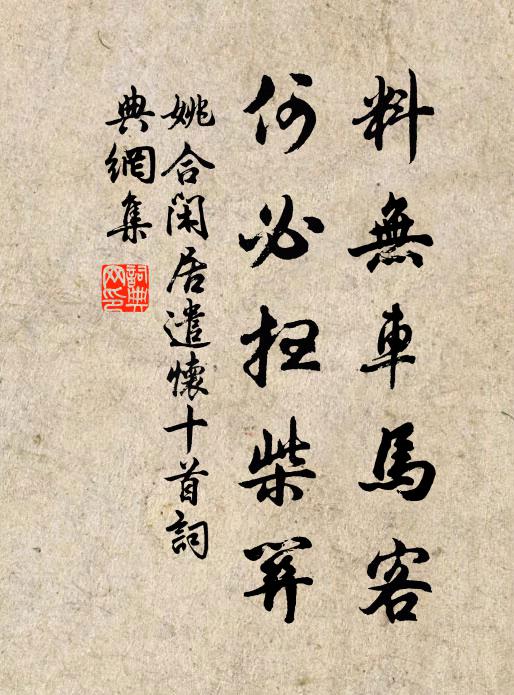 料無車馬客
何必扫柴關
姚合閑居遣懷十首詞
典網集
詞典網印